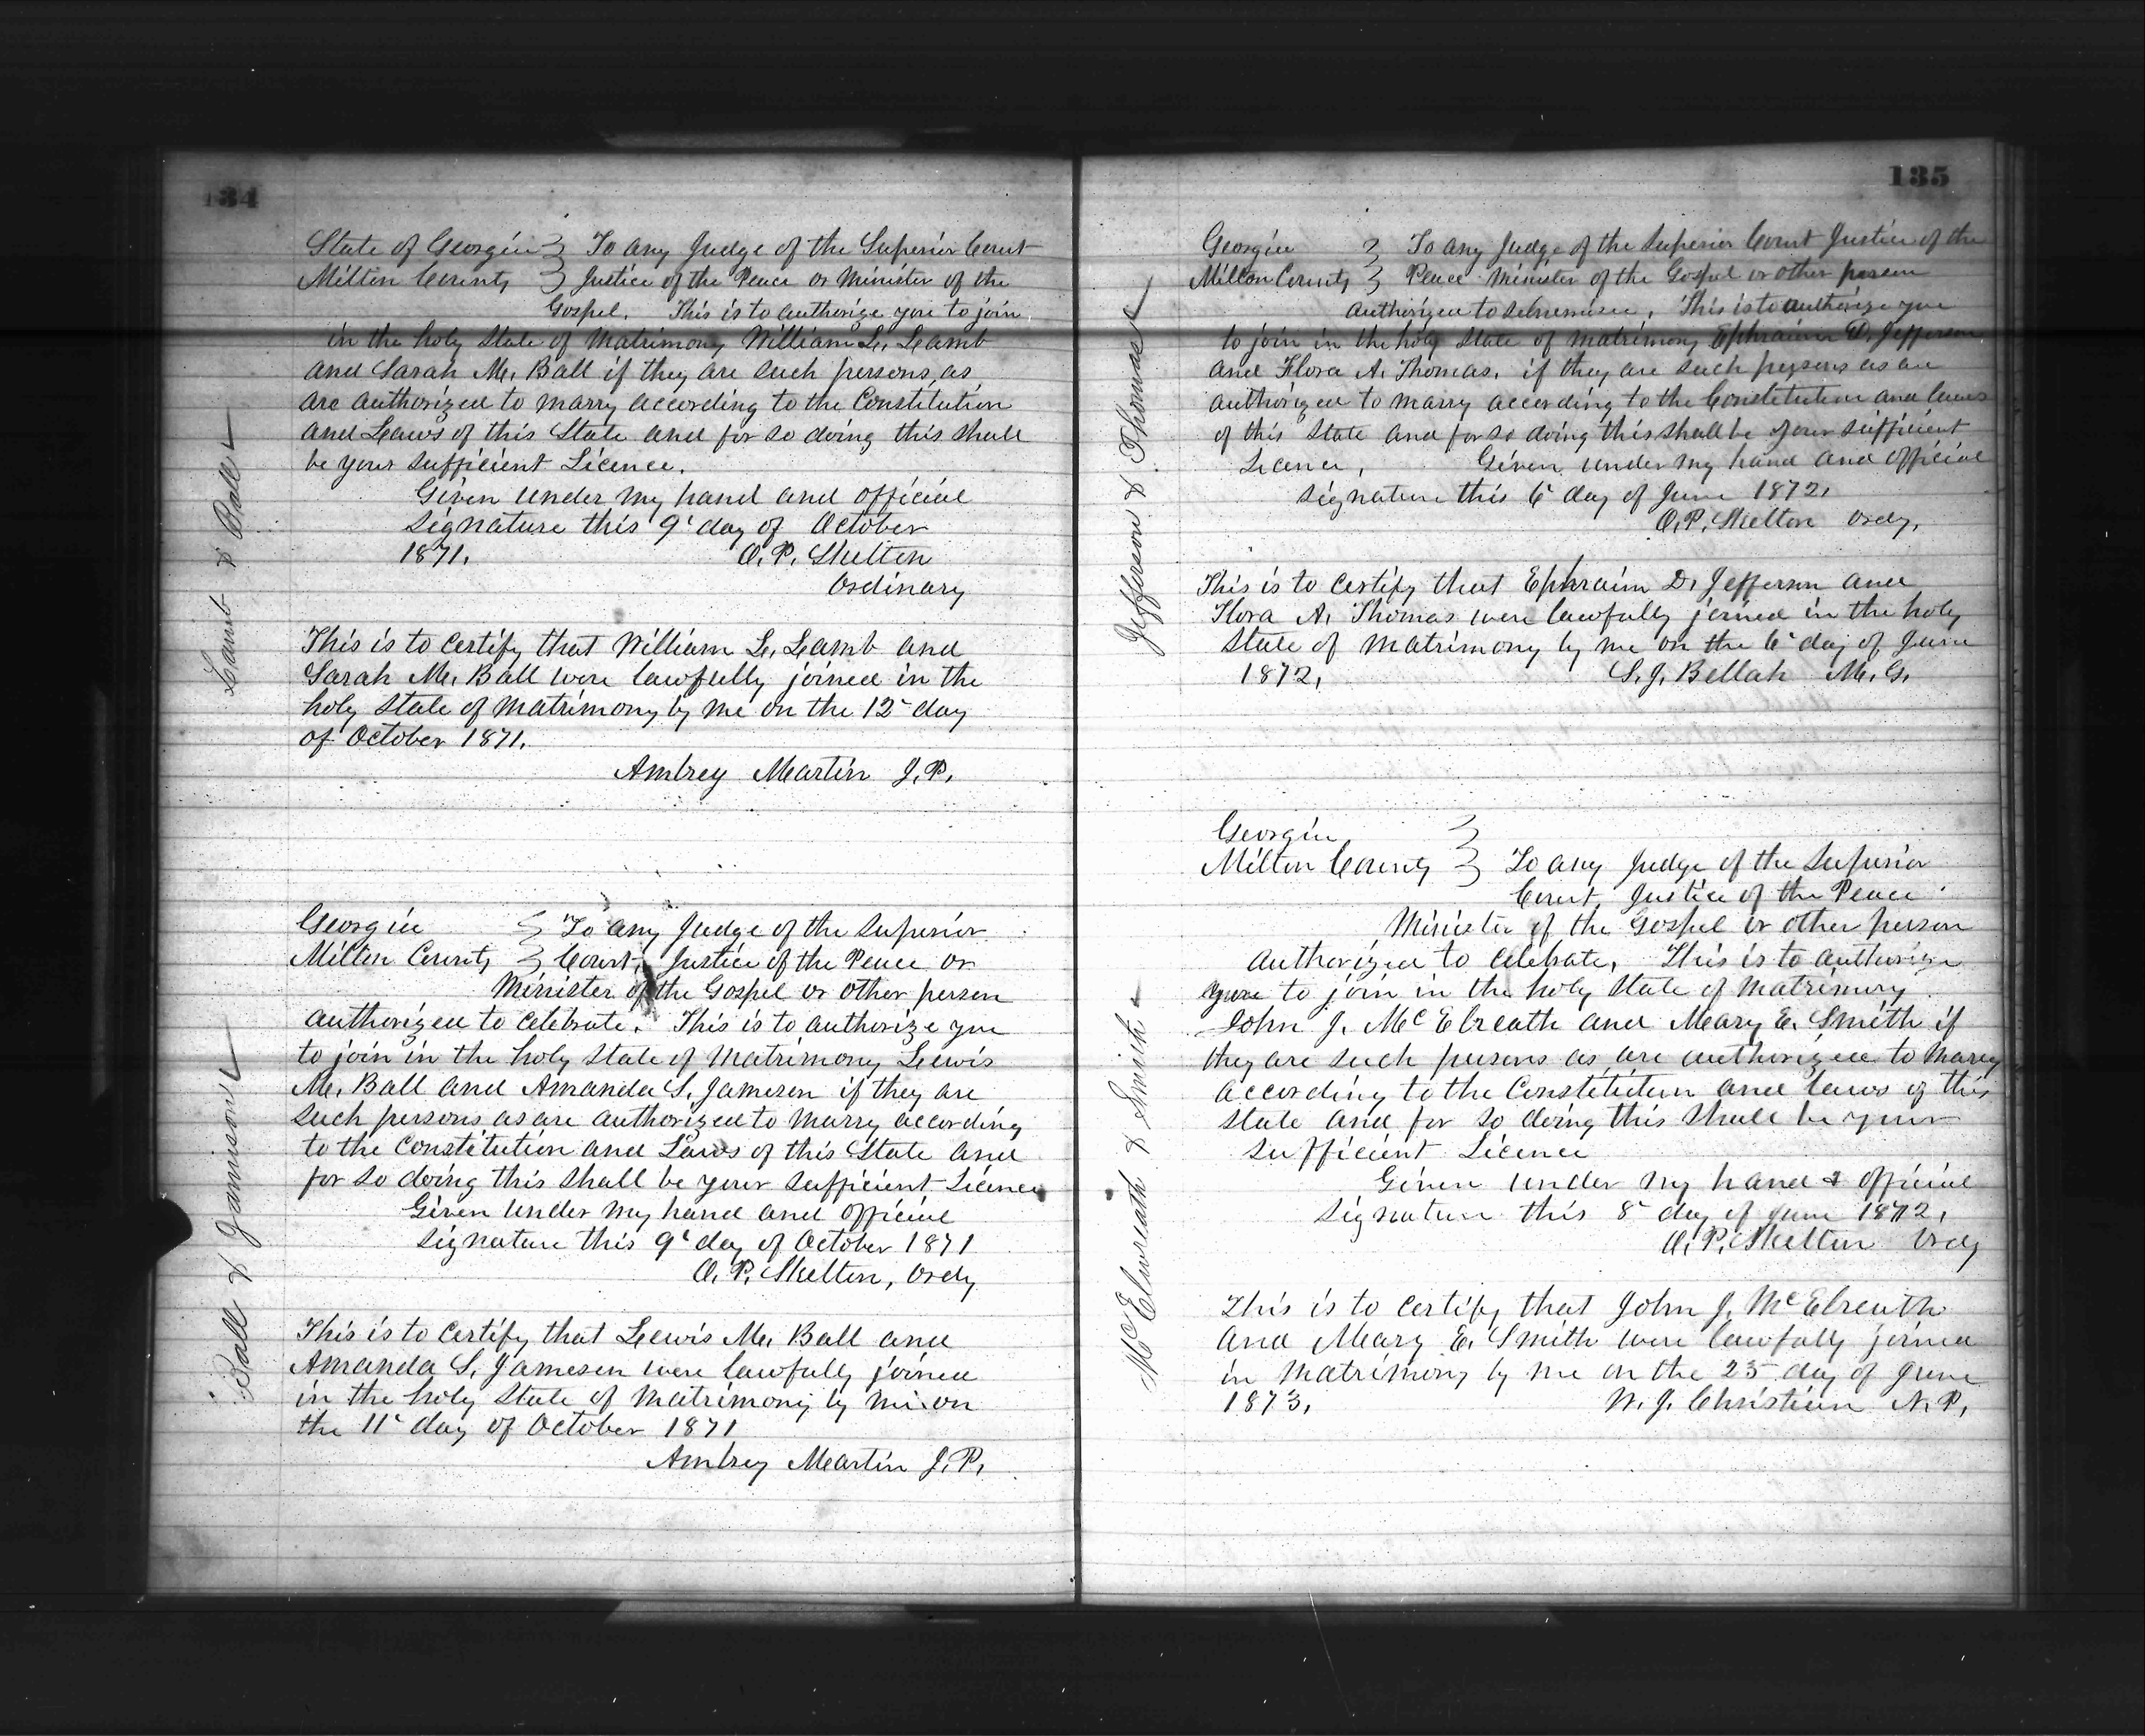 134
Lamb & Ball
State of Georgia } To any Judge of the Superior Court
Milton County } Justice of the Peace or Minister of the
Gospel. This is to authorize you to join
in the holy State of Matrimony William L. Lamb
and Sarah M. Ball if they are such persons as
are authorized to marry according to the Constitution
and Laws of this State and for so doing this shall
be your sufficient Licence.
Given under my hand and official
signature this 9' day of October
1871. O. P. Skelton
Ordinary
This is to certify that William L. Lamb and
Sarah M. Ball were lawfully joined in the
holy state of matrimony by me on the 12' day
of October 1871.
Ambrey Martin J. P.
Ball & Jamison
Georgia } To any Judge of the Superior
Milton County } Court, Justice of the Peace or
Minister of the Gospel or other person
authorized to celebrate. This is to authorize you
to join in the holy state of Matrimony Lewis
M. Ball and Amanda S. Jameson if they are
such persons as are authorized to marry according
to the Constitution and Laws of this State and
for so doing this shall be your sufficient Licence
Given under my hand and official
signature this 9' day of October 1871
O. P. Skelton, Ordy
This is to certify that Lewis M. Ball and
Amanda S. Jameson were lawfully joined
in the holy state of matrimony by me on
the 11' day of October 1871
Ambrey Martin J. P.
135
Jefferson & Thomas
Georgia } To any Judge of the Superior Court Justice of the
Milton County } Peace Minister of the Gospel or other person
authorized to . This is to authorize you
to join in the holy state of matrimony Ephraim D. Jefferson
and Flora A. Thomas, if they are such persons as are
authorized to marry according to the Constitution and laws
of this State and for so doing this shall be your sufficient
Licence. Given under my hand and official
signature this 6' day of June 1872.
O. P. Skelton Ordy.
This is to certify that Ephraim D. Jefferson and
Flora A. Thomas were lawfully joined in the holy
state of matrimony by me on the 6' day of June
1872. S. J. Bellah M. G.
McElwreath & Smith
Georgia }
Milton County } To any Judge of the Superior
Court, Justice of the Peace
Minister of the Gospel or other person
authorized to celebrate, This is to authorize
you to join in the holy state of matrimony
John J. McElreath and Mary E. Smith if
they are such persons as are authorized to marry
according to the Constitution and laws of this
state and for so doing this shall be your
sufficient Licence
Given under my hand & official
signature this 8' day of June 1872.
O. P. Skelton Ordy
This is to certify that John J. McElreath
and Mary E. Smith were lawfully joined
in matrimony by me on the 25 day of June
1873. W. J. Christian N. P.